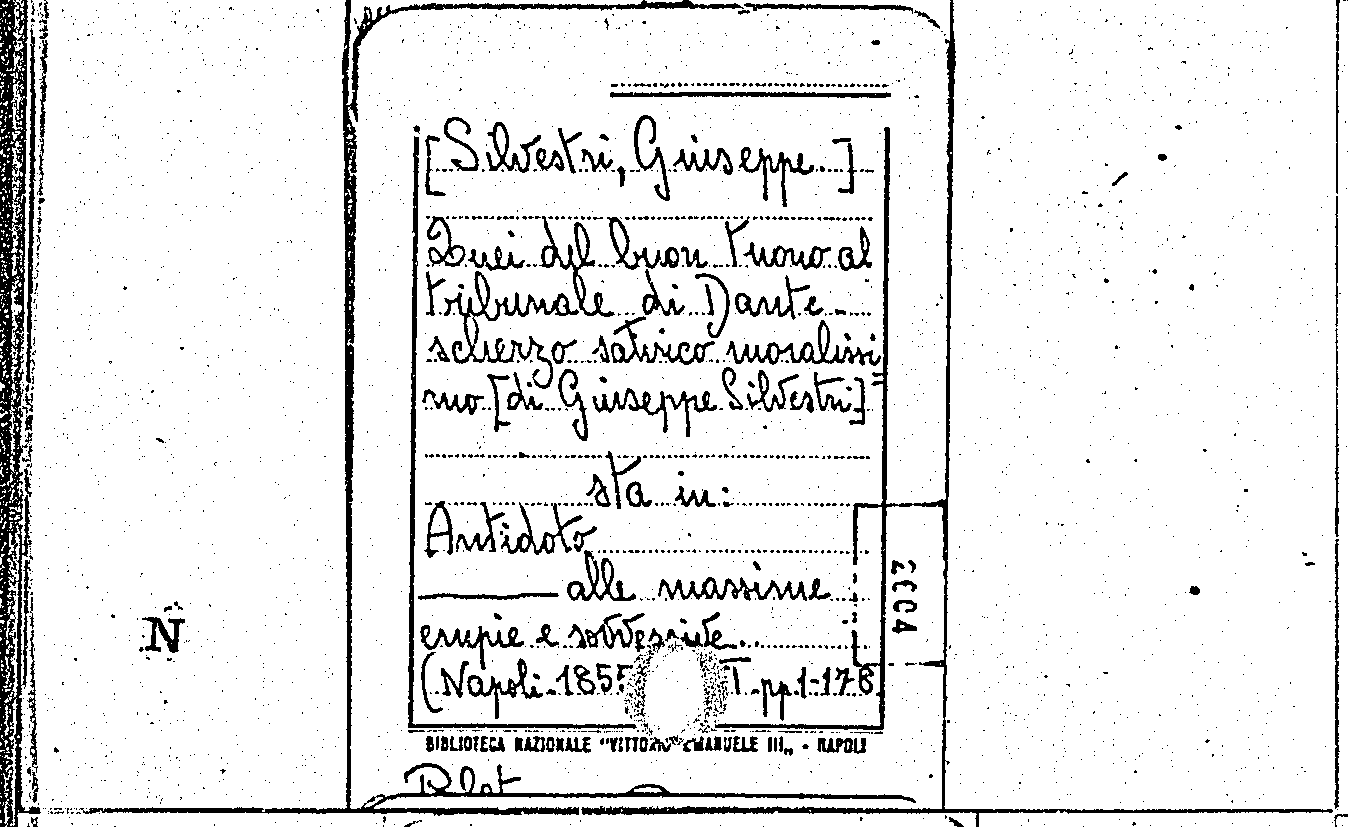 [Silvestri, Giuseppe.]
Quei del buon tuono al
tribunale di Dante -
scherzo satirico moralissi=
mo [di Giuseppe Silvestri]
sta in:
Antidoto
——— alle massime
empie e sovversive..
(Napoli-1855 T. pp. 1-178
BIBLIOTECA NAZIONALE "VITTORIO EMANUELE III„ - NAPOLI
N